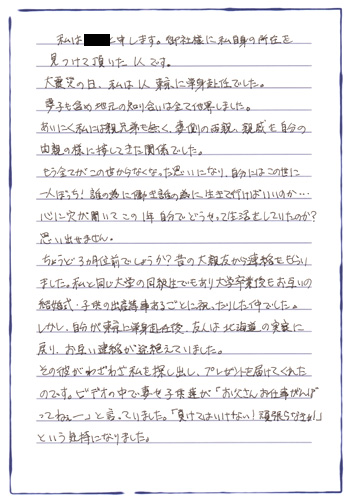 私は と申します。御社様に私自身の所在を
見つけて頂いた1人です。
大震災の日、私は1人東京に単身赴任でした。
妻子も含め地元の知り合いは全て他界しました。
あいにく私には親兄弟も無く、妻側の両親、親戚を自分の
両親の様に接してきた関係でした。
もう全てがこの世からなくなった思いになり、自分にはこの世に
一人ぼっち!誰の為に働き誰の為に生きて行けばいいのか…
心に穴が開いてこの1年自分でどうやって生活をしていたのか?
思い出せません。
ちょうど3ヵ月位前でしょうか?昔の大親友から連絡をもらい
ました。私と同じ大学の同級生でもあり大学卒業後もお互いの
結婚式・子供の出産等事あるごとに祝ったりした仲でした。
しかし、自分が東京に単身赴任後、友人は北海道の実家に
戻り、お互い連絡が途絶えていました。
その彼がわざわざ私を探し出し、プレゼントを届けてくれた
のです。ビデオの中で妻や子供達が「お父さんお仕事がんば
ってねぇー」と言っていました。「負けてはいけない!頑張らなきゃ!」
という気持になりました。